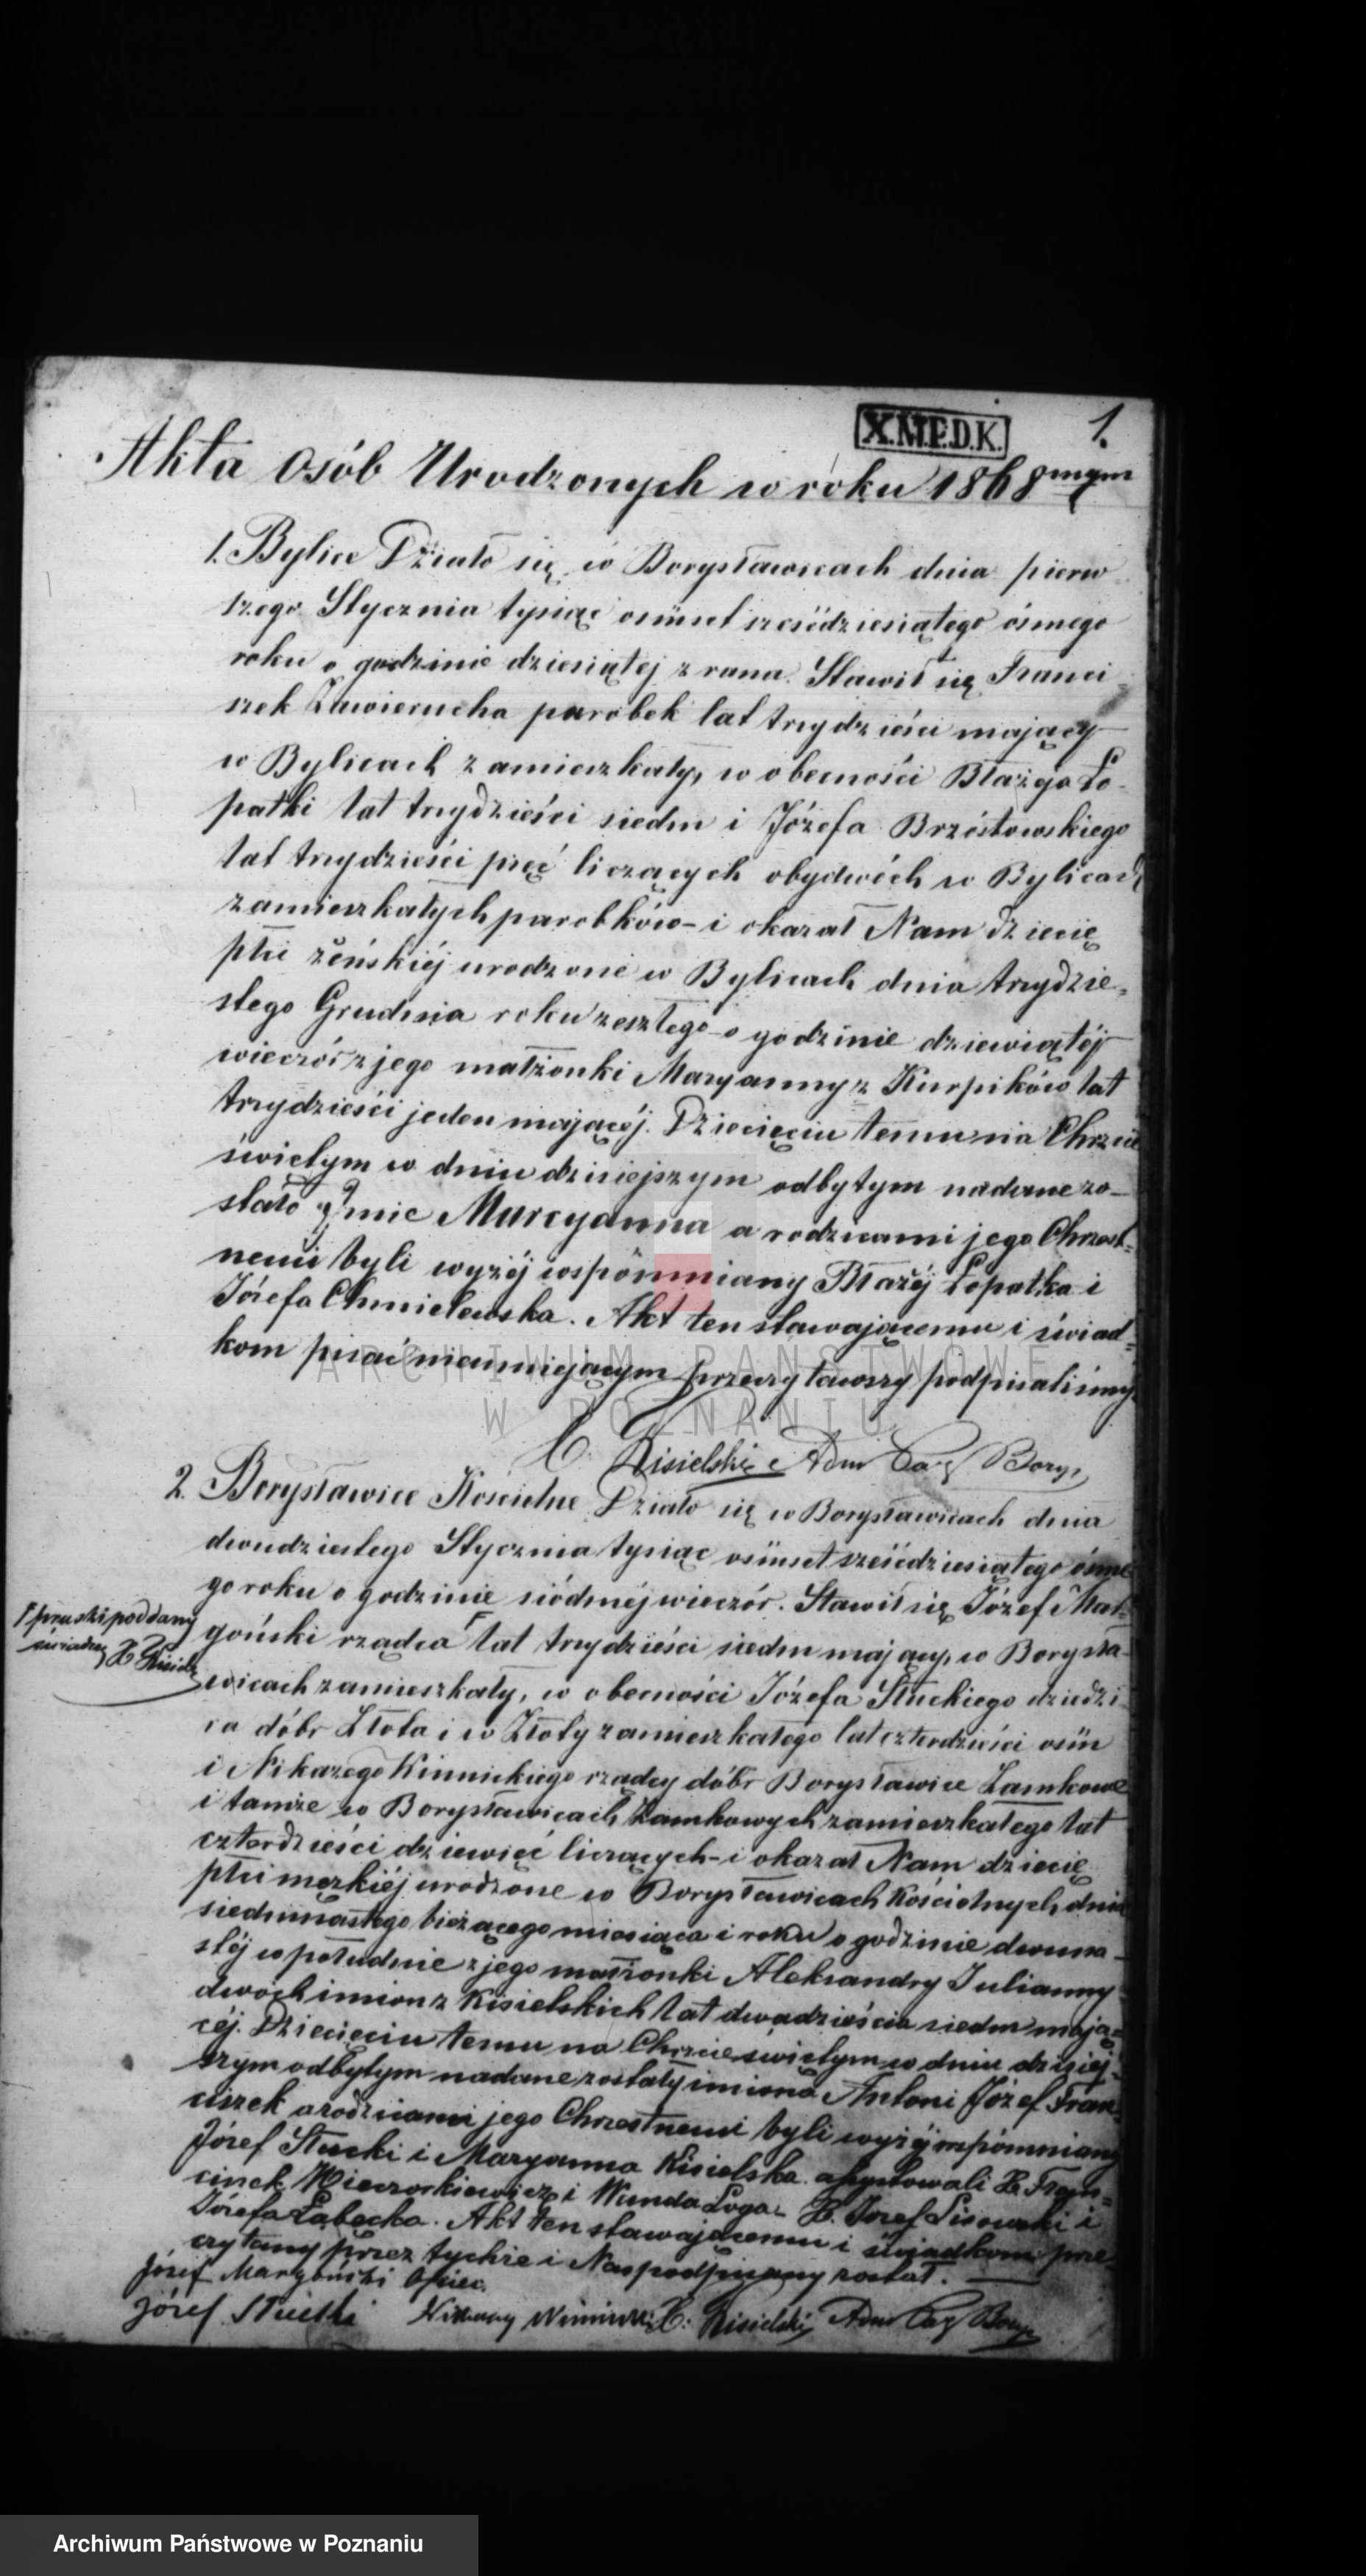 X.M.P.D.K.
1.
Akta Osób Urodzonych w roku 1868mym
1. Bylice Działo się w Borysławicach dnia pierw
szego Stycznia tysiąc ośmset sześćdziesiątego ósmego
roku o godzinie dziesiątej z rana. Stawił się Franci
szek Zawierucha parobek lat trzydzieści mający
w Bylicach zamieszkały, w obecności Błażeja Ło-
patki lat trzydzieści siedm i Józefa Brzóstowskiego
lat trzydzieści pięć liczących obydwóch w Bylicach
zamieszkałych parobków - i okazał Nam dziecię
płci żeńskiéj urodzone w Bylicach dnia trzydzie-
stego Grudnia roku zeszłego o godzinie dziewiątéj
wieczór z jego małżonki Maryanny z Kurpików lat
trzydzieści jeden mającéj. Dziecięciu temu na Chrzcie
świętym w dniu dzisiejszym odbytym nadane zo-
stało Imie Marcyanna a rodzicami jego Chrzest-
nemi byli wyżéj wspómniany Błażéj Łopatka i
Józefa Chmielewska. Akt ten stawającemu i świad-
kom pisać nieumiejącym przeczytawszy podpisaliśmy.
Kisielski Adm Borys
2. Borysławice Kościelne Działo się w Borysławicach dnia
dwudziestego Stycznia tysiąc ośmset sześćdziesiątego ósme
go roku o godzinie siódméj wieczór. Stawił się Józef Mał-
goński rządca F lat trzydzieści siedm mający, w Borysła-
F pruski poddany
świadczę X Kisiels
wicach zamieszkały, w obecności Józefa Stuckiego dziedzi
ca dóbr Złota i w Złoty zamieszkałego lat czterdzieści ośm
i Nikazego rządcy dóbr Borysławice Zamkowe
i tamże w Borysławicach Zamkowych zamieszkałego lat
czterdzieści dziewięć liczących - i okazał Nam dziecię
płci męzkiéj urodzone w Borysławicach Kościelnych dnia
siedmnastego bieżącego miesiąca i roku o godzinie dwuna-
stéj w południe z jego małżonki Aleksandry Julianny
dwóch imion z Kisielskich lat dwadzieścia siedm mają-
céj. Dziecięciu temu na Chrzcie świętym w dniu dzisiej-
szym odbytym nadane zostały imiona Antoni Józef Fran-
ciszek a rodzicami jego Chrzestnemi byli wyżéj wspómniany
Józef Stucki i Maryanna Kisielska. assystowali X. Fran-
i Wanda X. Józef Lisowski i
Józefa Łabęcka. Akt ten stawającemu i świadkom prze-
czytany przez tychże i Nas podpisany został.
Józef Ojciec.
Józef Stucki X. Kisielski Adm Borys
ARCHIWUM PAŃSTWOWE
W POZNANIU
Archiwum Państwowe w Poznaniu